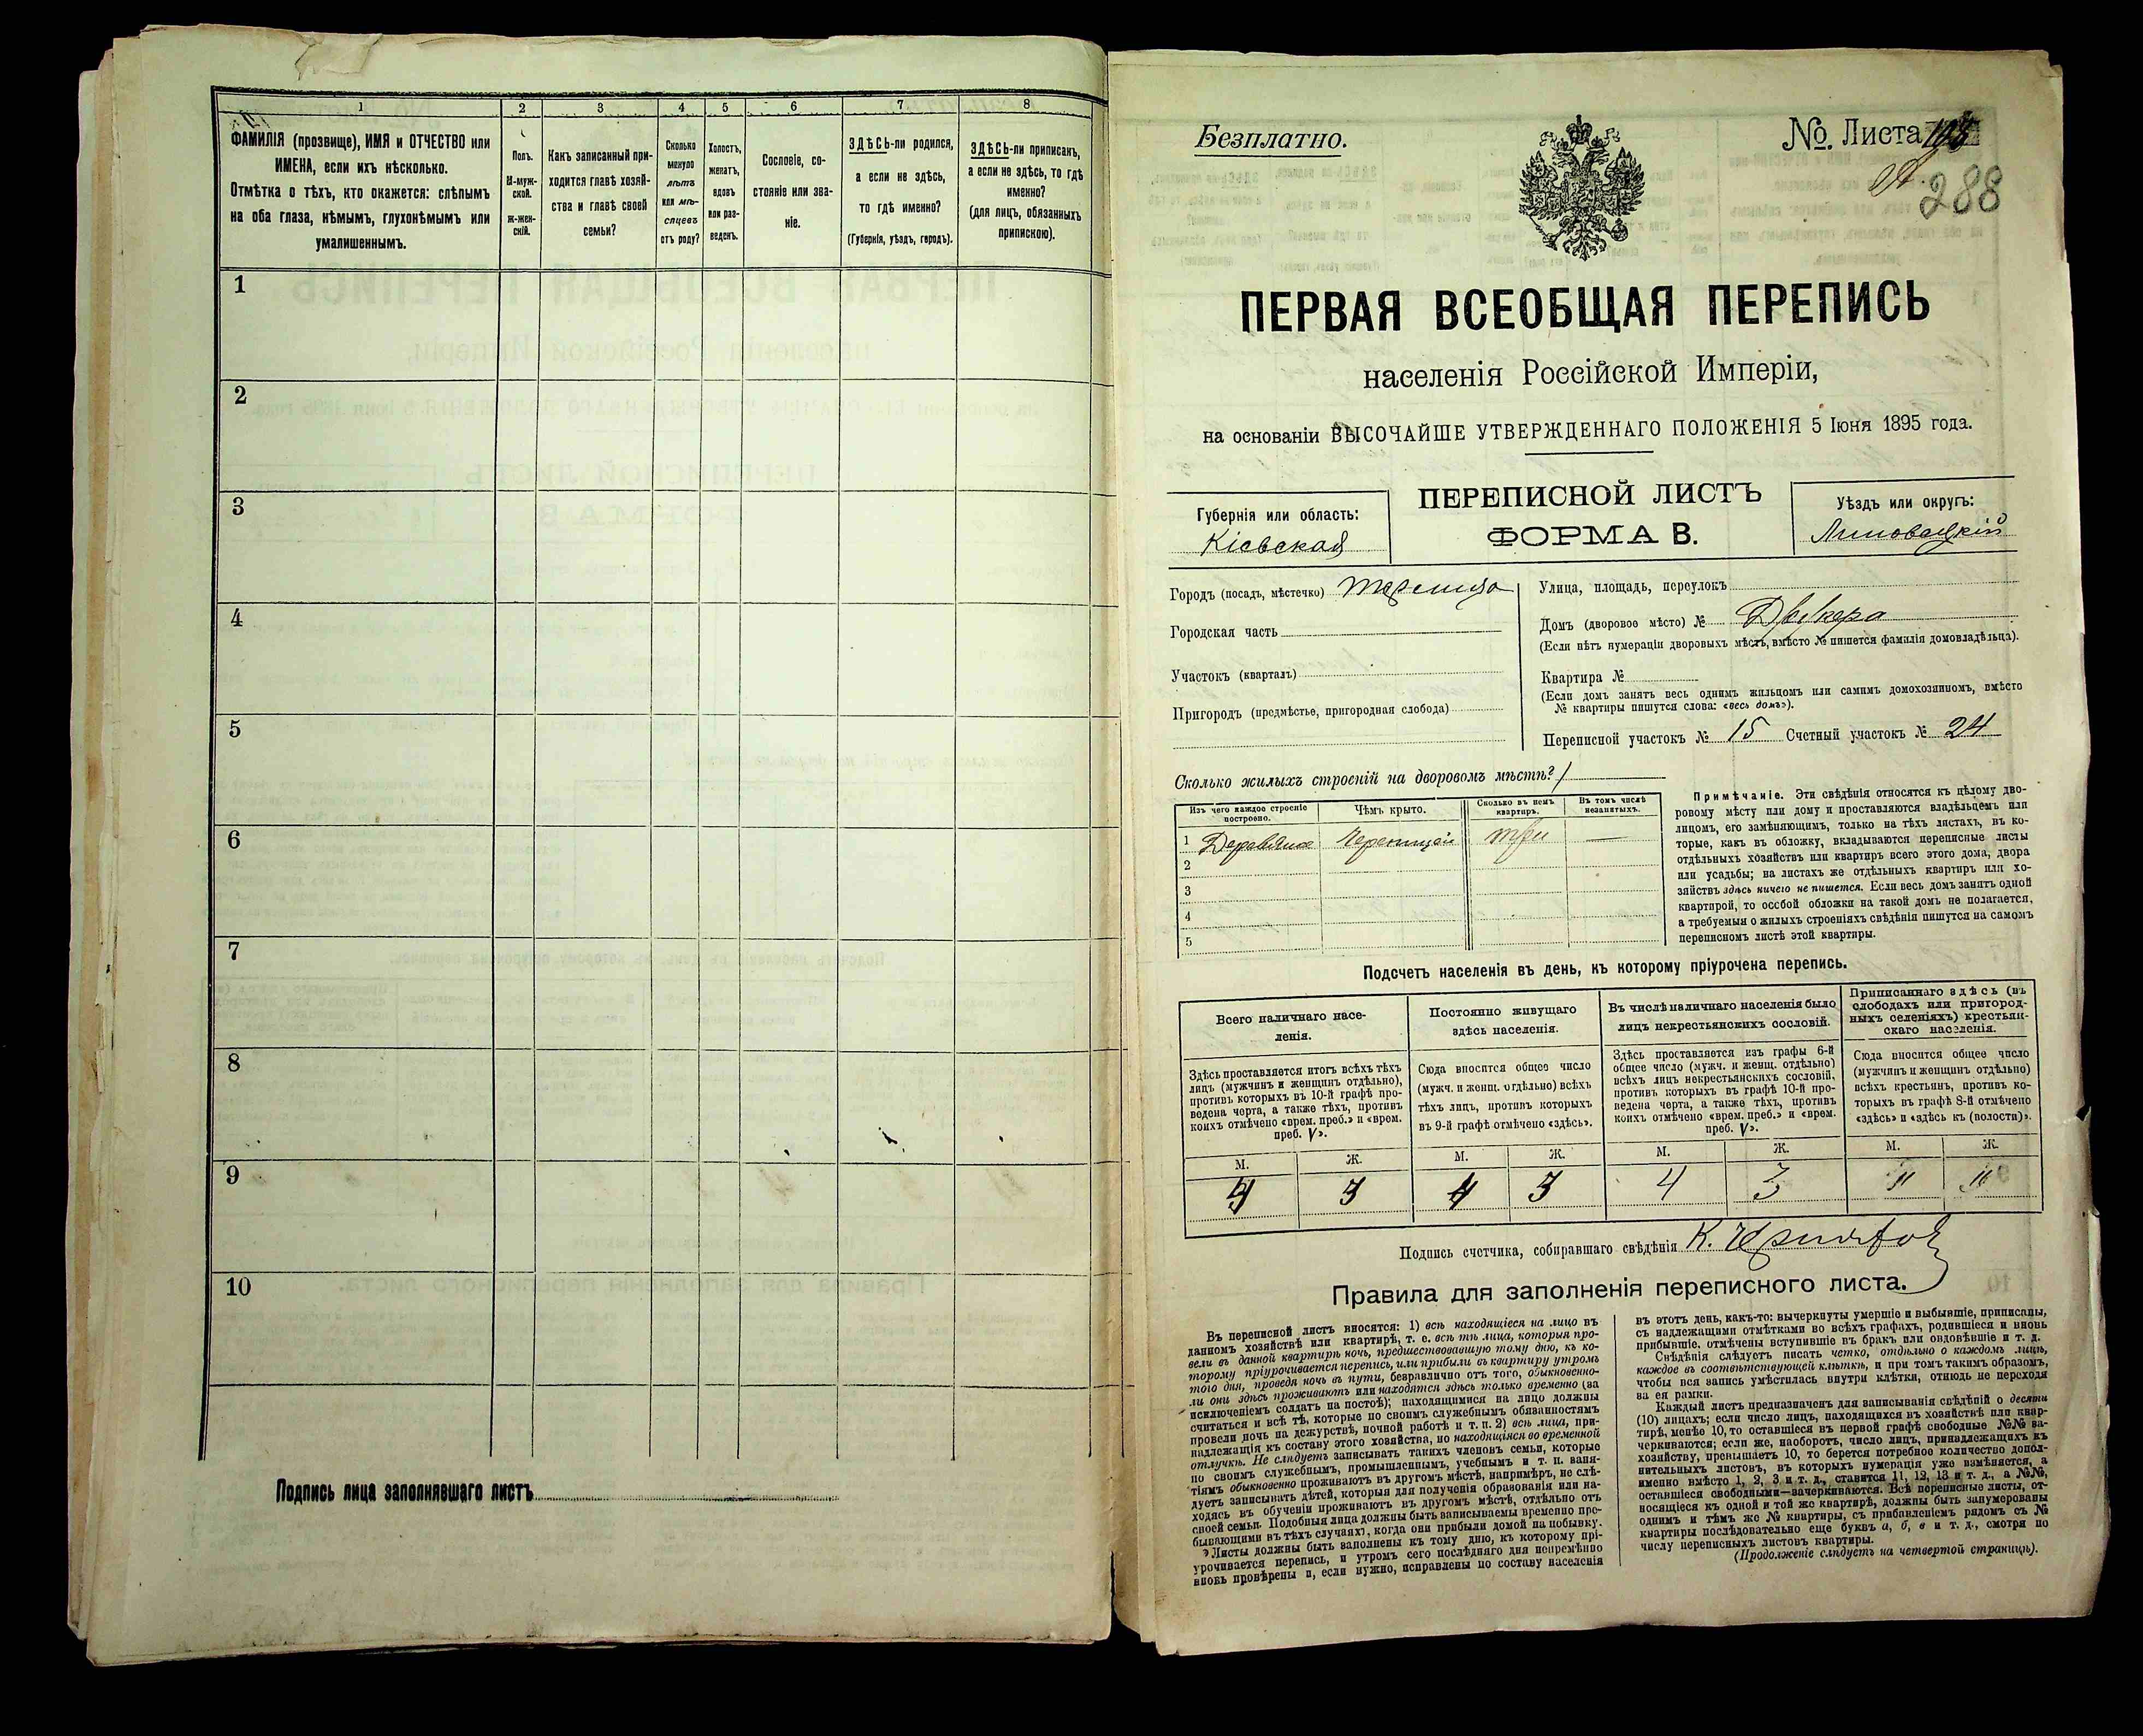 1 2 3 4 5 6 7 8
ФАМИЛІЯ (прозвище), ИМЯ и ОТЧЕСТВО или
ИМЕНА, если ихъ нѣсколько.
Отмѣтка о тѣхъ, кто окажется: слѣпымъ
на оба глаза, нѣмымъ, глухонѣмымъ или
умалишеннымъ.
Полъ.
М-муж-
ской.
ж-жен-
скій.
Какъ записанный при-
ходится главѣ хозяй-
ства и главѣ своей
семьи?
Сколько
минуло
лѣтъ
или мѣ-
сяцевъ
отъ роду?
Холостъ,
женатъ,
вдовъ
или раз-
веденъ.
Сословіе, со-
стояніе или зва-
ніе.
ЗДѢСЬ-ли родился,
а если не здѣсь,
то гдѣ именно?
(Губернія, уѣздъ, городъ).
ЗДѢСЬ-ли приписанъ,
а если не здѣсь, то гдѣ
именно?
(для лицъ, обязанныхъ
припискою).
1
2
3
4
5
6
7
8
9
10
Подпись лица заполнявшаго листъ
Безплатно.
№. Листа
288
ПЕРВАЯ ВСЕОБЩАЯ ПЕРЕПИСЬ
населенія Россійской Имперіи,
на основаніи ВЫСОЧАЙШЕ УТВЕРЖДЕННАГО ПОЛОЖЕНІЯ 5 Іюня 1895 года.
Губернія или область:
Кіевская
ПЕРЕПИСНОЙ ЛИСТЪ
ФОРМА В.
Уѣздъ или округъ:
Липовецкій
Городъ (посадъ, мѣстечко)
Городская часть
Участокъ (кварталъ)
Пригородъ (предмѣстье, пригородная слобода)
Улица, площадь, переулокъ
Домъ (дворовое мѣсто) № Друкера
(Если нѣтъ нумераціи дворовыхъ мѣстъ, вмѣсто № пишется фамилія домовладѣльца).
Квартира №
(Если домъ занятъ весь однимъ жильцомъ или самимъ домохозяиномъ, вмѣсто
№ квартиры пишутся слова: «весь домъ»).
Переписной участокъ № 15 Счетный участокъ № 24
Сколько жилыхъ строеній на дворовомъ мѣстѣ? 1
Изъ чего каждое строеніе
построено.
Чѣмъ крыто.
Сколько въ немъ
квартиръ.
Въ томъ числѣ
незанятыхъ.
1 Деревяное Черепицей три —
2
3
4
5
Примѣчаніе. Эти свѣдѣнія относятся къ цѣлому дво-
ровому мѣсту или дому и проставляются владѣльцемъ или
лицомъ, его замѣняющимъ, только на тѣхъ листахъ, въ ко-
торые, какъ въ обложку, вкладываются переписные листы
отдѣльныхъ хозяйствъ или квартиръ всего этого дома, двора
или усадьбы; на листахъ же отдѣльныхъ квартиръ или хо-
зяйствъ здѣсь ничего не пишется. Если весь домъ занятъ одной
квартирой, то особой обложки на такой домъ не полагается,
а требуемыя о жилыхъ строеніяхъ свѣдѣнія пишутся на самомъ
переписномъ листѣ этой квартиры.
Подсчетъ населенія въ день, къ которому пріурочена перепись.
Всего наличнаго насе-
ленія.
Здѣсь проставляется итогъ всѣхъ тѣхъ
лицъ (мужчинъ и женщинъ отдѣльно),
противъ которыхъ въ 10-й графѣ про-
ведена черта, а также тѣхъ, противъ
коихъ отмѣчено «врем. преб.» и «врем.
преб. V».
Постоянно живущаго
здѣсь населенія.
Сюда вносится общее число
(мужч. и женщ. отдѣльно) всѣхъ
тѣхъ лицъ, противъ которыхъ
въ 9-й графѣ отмѣчено «здѣсь».
Въ числѣ наличнаго населенія было
лицъ некрестьянскихъ сословій.
Здѣсь проставляется изъ графы 6-й
общее число (мужч. и женщ. отдѣльно)
всѣхъ лицъ некрестьянскихъ сословій,
противъ которыхъ въ графѣ 10-й про-
ведена черта, а также тѣхъ, противъ
коихъ отмѣчено «врем. преб.» и «врем.
преб. V».
Приписаннаго здѣсь (въ
слободахъ или пригород-
ныхъ селеніяхъ) крестьян-
скаго населенія.
Сюда вносится общее число
(мужчинъ и женщинъ отдѣльно)
всѣхъ крестьянъ, противъ ко-
торыхъ въ графѣ 8-й отмѣчено
«здѣсь» и «здѣсь къ (волости)».
М. Ж. М. Ж. М. Ж. М. Ж.
4 3 4 3 4 3 " "
Подпись счетчика, собиравшаго свѣдѣнія К.
Правила для заполненія переписного листа.
Въ переписной листъ вносятся: 1) всѣ находящіеся на лицо въ
данномъ хозяйствѣ или квартирѣ, т. е. всѣ тѣ лица, которыя про-
вели въ данной квартирѣ ночь, предшествовавшую тому дню, къ ко-
торому пріурочивается перепись, или прибыли въ квартиру утромъ
того дня, проведя ночь въ пути, безразлично отъ того, обыкновенно-
ли они здѣсь проживаютъ или находятся здѣсь только временно (за
исключеніемъ солдатъ на постоѣ); находящимися на лицо должны
считаться и всѣ тѣ, которые по своимъ служебнымъ обязанностямъ
провели ночь на дежурствѣ, ночной работѣ и т. п. 2) всѣ лица, при-
надлежащія къ составу этого хозяйства, но находящіяся во временной
отлучкѣ. Не слѣдуетъ записывать такихъ членовъ семьи, которые
по своимъ служебнымъ, промышленнымъ, учебнымъ и т. п. заня-
тіямъ обыкновенно проживаютъ въ другомъ мѣстѣ, напримѣръ, не слѣ-
дуетъ записывать дѣтей, которыя для полученія образованія или на-
ходясь въ обученіи проживаютъ въ другомъ мѣстѣ, отдѣльно отъ
своей семьи. Подобныя лица должны быть записываемы временно про-
бывающими въ тѣхъ случаяхъ, когда они прибыли домой на побывку.
Листы должны быть заполнены къ тому дню, къ которому прі-
урочивается перепись, и утромъ сего послѣдняго дня непремѣнно
вновь провѣрены и, если нужно, исправлены по составу населенія
въ этотъ день, какъ-то: вычеркнуты умершіе и выбывшіе, приписаны,
съ надлежащими отмѣтками во всѣхъ графахъ, родившіеся и вновь
прибывшіе, отмѣчены вступившіе въ бракъ или овдовѣвшіе и т. д.
Свѣдѣнія слѣдуетъ писать четко, отдѣльно о каждомъ лицѣ,
каждое въ соотвѣтствующей клѣткѣ, и при томъ такимъ образомъ,
чтобы вся запись умѣстилась внутри клѣтки, отнюдь не переходя
за ея рамки.
Каждый листъ предназначенъ для записыванія свѣдѣній о десяти
(10) лицахъ; если число лицъ, находящихся въ хозяйствѣ или квар-
тирѣ, менѣе 10, то оставшіеся въ первой графѣ свободные №№ за-
черкиваются; если же, наоборотъ, число лицъ, принадлежащихъ къ
хозяйству, превышаетъ 10, то берется потребное количество допол-
нительныхъ листовъ, въ которыхъ нумерація уже измѣняется, а
именно вмѣсто 1, 2, 3 и т. д., ставится 11, 12, 13 и т. д., а №№,
оставшіеся свободными—зачеркиваются. Всѣ переписные листы, от-
носящіеся къ одной и той же квартирѣ, должны быть занумерованы
однимъ и тѣмъ же № квартиры, съ прибавленіемъ рядомъ съ №
квартиры послѣдовательно еще буквъ а, б, в и т. д., смотря по
числу переписныхъ листовъ квартиры.
(Продолженіе слѣдуетъ на четвертой страницѣ).